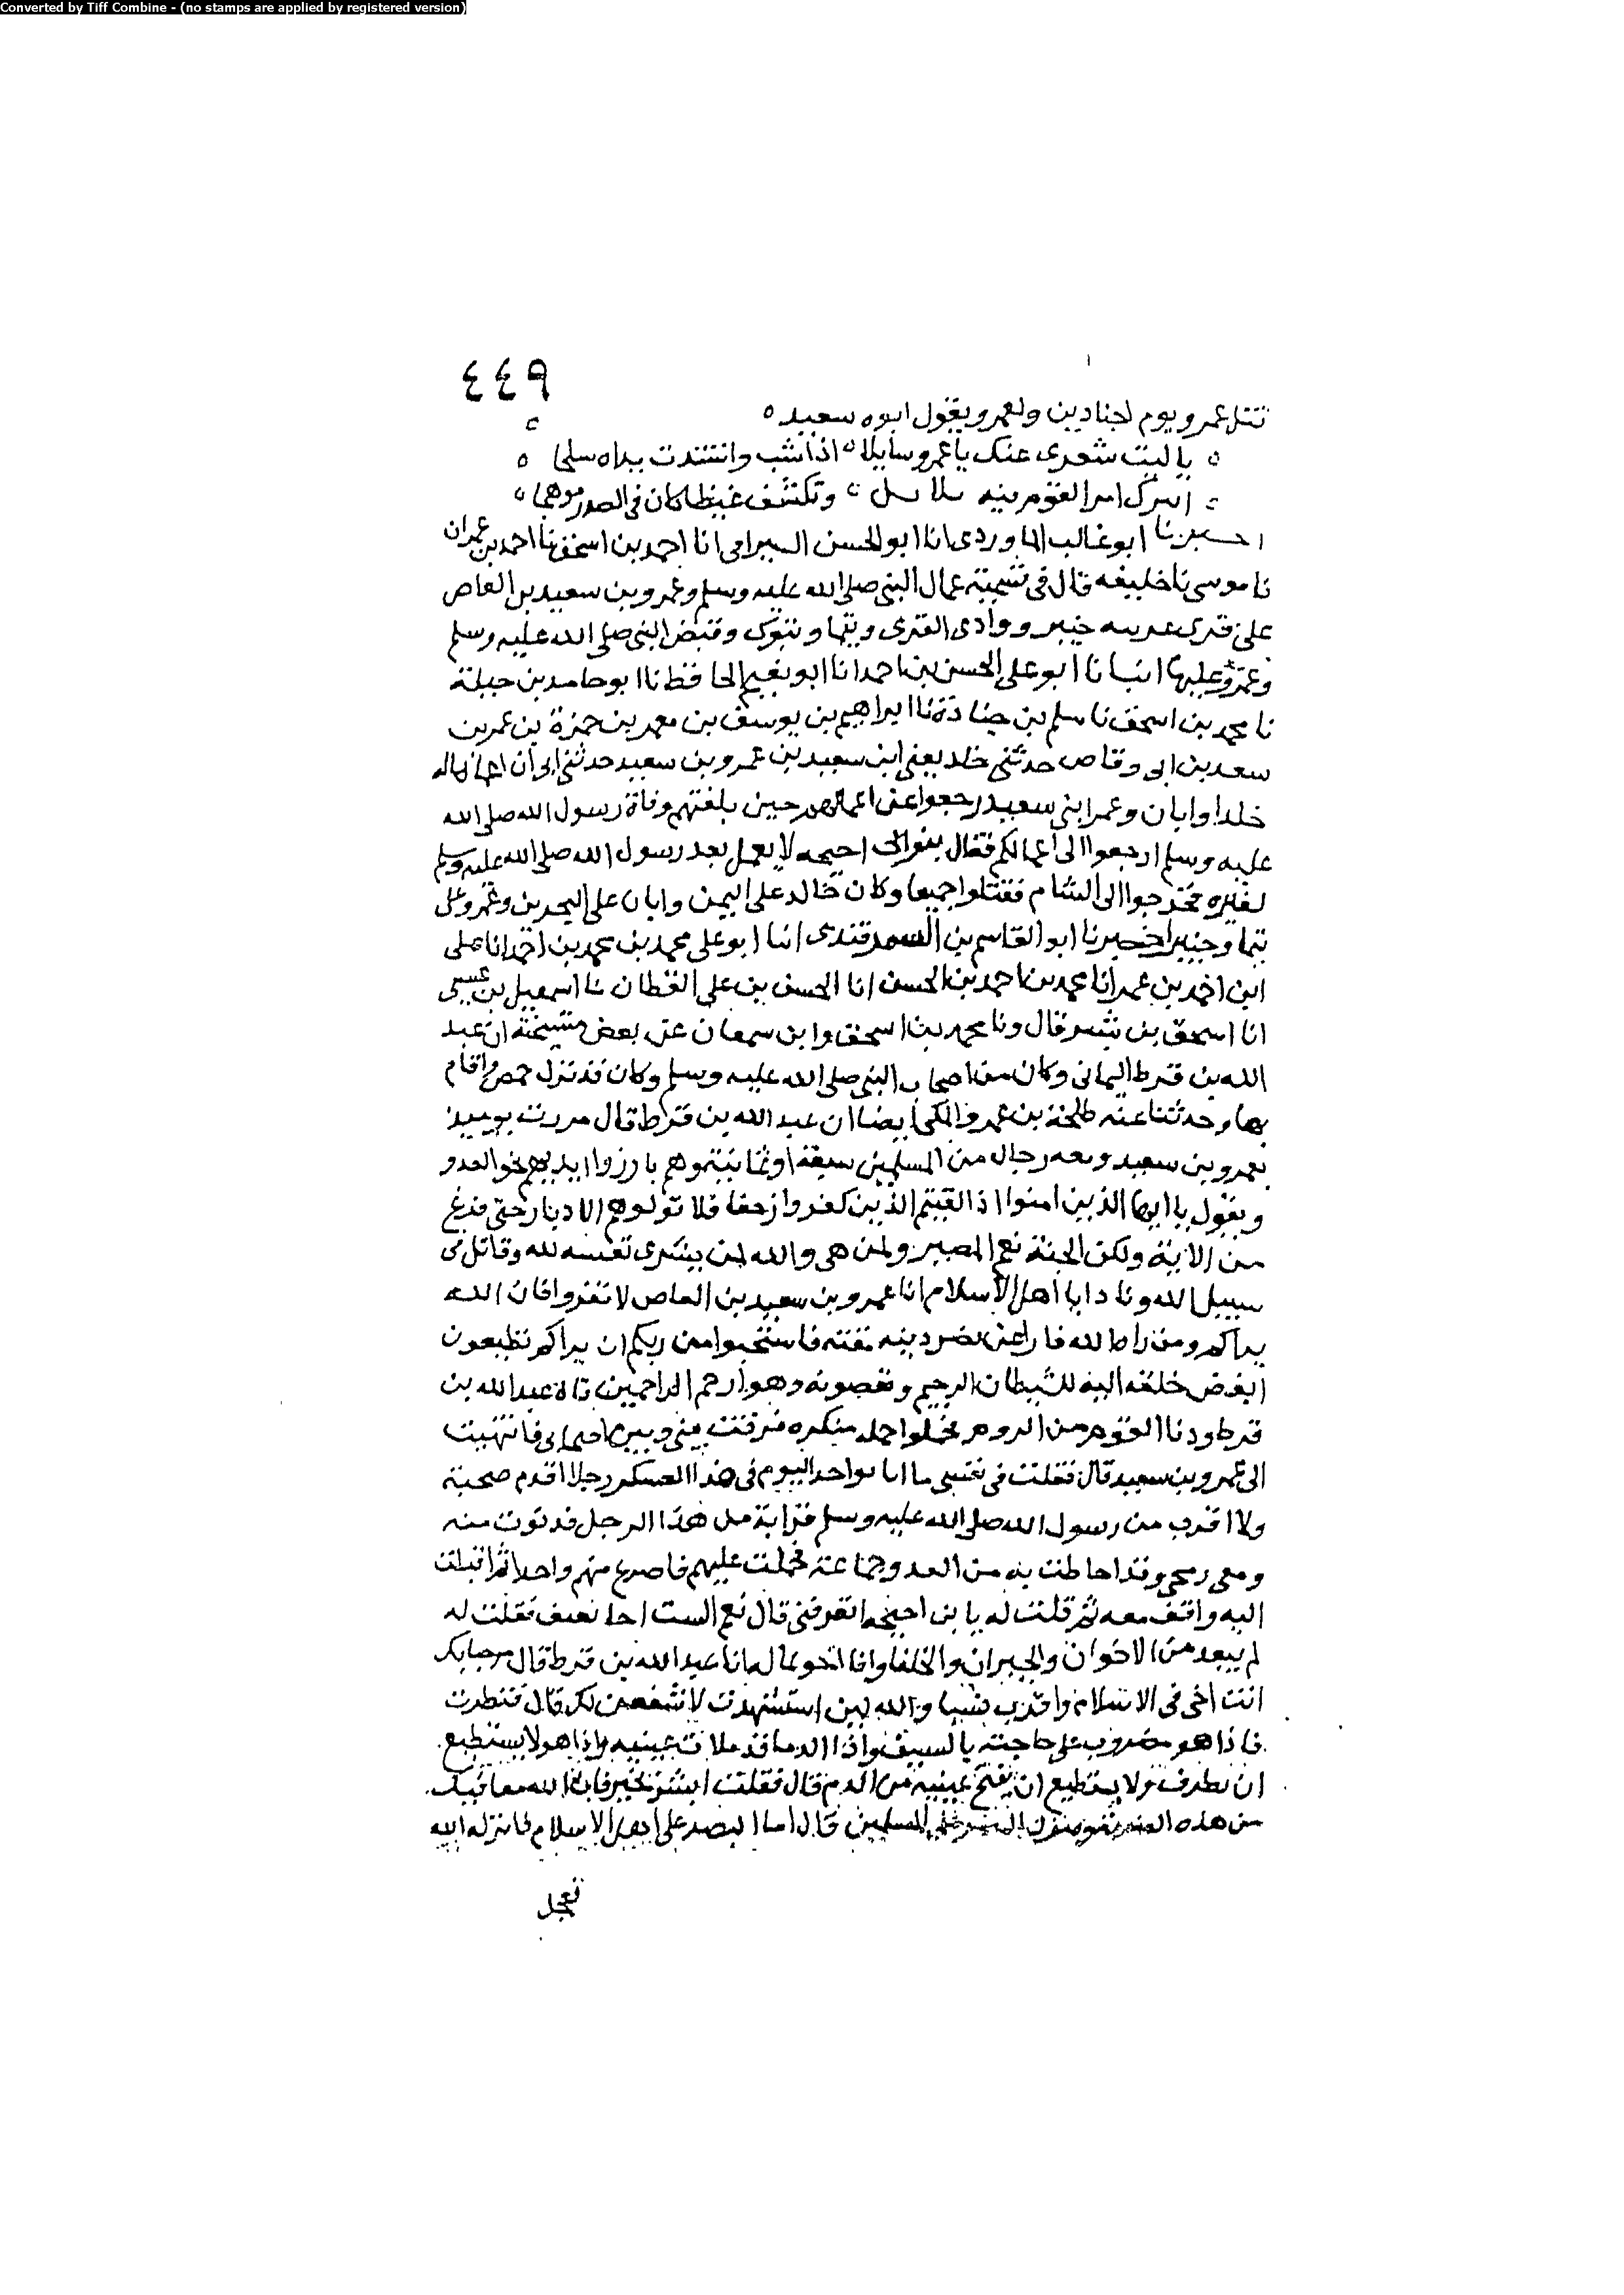 Converted by Tiff Combine - (no stamps are applied by registered version)
٤٤٩
قتل عمرو يوم اجنادين ولعمرو يقول ابوه سعيد
يا ليت شعرى عنك يا عمرو سايلا اذا شب واشتدت يداه سلحا
اتترك امر القوم فيه بلابل وتكشف غيظا كان فى الصدر موهجا
اخبرنا ابو غالب الماوردى انا ابو الحسن السيرافى انا احمد بن اسحق نا احمد بن عمران
نا موسى نا خليفه قال فى تسمية عمال النبى صلى الله عليه وسلم وعمرو بن سعيد بن العاص
على قرى عربيه خيبر ووادى القرى وتيما وتبوك وقبض النبى صلى الله عليه وسلم
وعمرو عليها انبانا ابو على الحسن بن احمد انا ابو نعيم الحافظ نا ابو حامد بن جبلة
نا محمد بن اسحق نا سلم بن جنادة نا ابراهيم بن يوسف بن معمر بن حمزة بن عمر بن
سعد بن ابى وقاص حدثنى خلد يعنى ابن سعيد بن عمرو بن سعيد حدثنى ابى ان اعمامه
خلدا وابان وعمرا بنى سعيد رجعوا عن اعمالهم حين بلغتهم وفاة رسول الله صلى الله
عليه وسلم ارجعوا الى اعمالكم فقال بنو ابى احيحه لا يعمل بعد رسول الله صلى الله عليه وسلم
لغيره فخرجوا الى الشام فقتلوا جميعا وكان خالد على اليمن وابان على البحرين وعمرو على
تيما وخيبر اخبرنا ابو القاسم بن السمرقندى انا ابو على محمد بن محمد بن احمد انا على
ابن احمد بن عمر انا محمد بن احمد بن الحسن انا الحسن بن على القطان نا اسمعيل بن عيسى
انا اسحق بن بشر قال ونا محمد بن اسحق وابن سمعان عن بعض مشيخته ان عبد
الله بن قرط اليمانى وكان من اصحاب النبى صلى الله عليه وسلم وكان قد نزل حمص واقام
بها وحدثنا عنه طلحة بن عمرو المكى ايضا ان عبد الله بن قرط قال مررت يوميذ
بعمرو بن سعيد ومعه رجال من المسلمين سبعة او ثمانية وهم بارزوا ايديهم نحو العدو
ويقول يا ايها الذين امنوا اذا لقيتم الذين كفروا زحفا فلا تولوهم الادبار حتى فرغ
من الاية ولكن الجنة نعم المصير ولمن هى والله لمن يشرى نفسه لله وقاتل فى
سبيل الله ونادا يا اهل الاسلام انا عمرو بن سعيد بن العاص لا تفروا فان الله
يراكم ومن راه الله فارا عن نصر دينه مقته فاستحيوا من ربكم ان يراكم تطيعون
ابغض خلقه اليه للشيطان الرجيم وتعصونه وهو ارحم الراحمين قال عبد الله بن
قرط ودنا القوم من الروم فحملوا حمله منكره فرقت بينى وبين اصحابى فانتهيت
الى عمرو بن سعيد قال فقلت فى نفسى ما انا بواجد اليوم فى هذا العسكر رجلا اقدم صحبة
ولا اقرب من رسول الله صلى الله عليه وسلم قرابة من هذا الرجل فدنوت منه
ومعى رمحى وقد احاطت به من العدو جماعة فحملت عليهم فاصرع منهم واحدا ثم اقبلت
اليه واقف معه ثم قلت له يا بن احيحه اتعرفنى قال نعم الست اخا فقلت له
لم يبعد من الاخوان والجيران والحلفا وانا اخو ثماله انا عبد الله بن قرط قال مرحبا بك
انت اخى فى الاسلام واقرب نسبا والله لين استشهدت لاشفعن لك قال فنظرت
فاذا هو مضروب على حاجبه بالسيف واذا الدما قد ملات عينيه واذا هو لا يستطيع
ان يطرف ولا يستطيع ان يفتح عينيه من الدم قال فقلت ابشر بخير فان الله معافيك
من هذه ومنزل النصر على المسلمين قال اما النصر على اهل الاسلام فانزله الله
فعجل